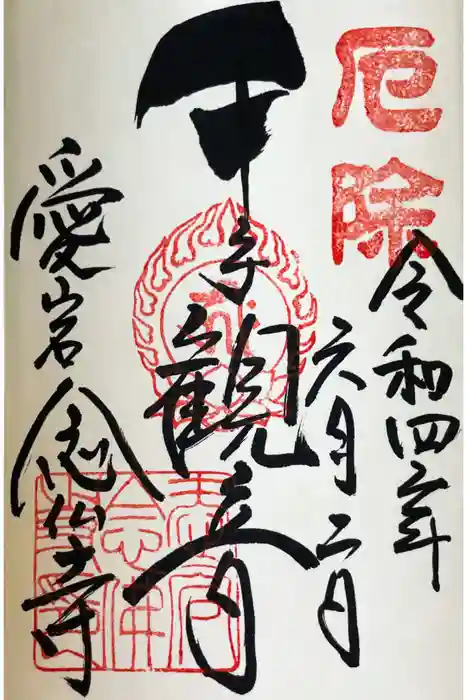 厄除
令和四年
六月二日
千手觀音
愛宕念仏寺